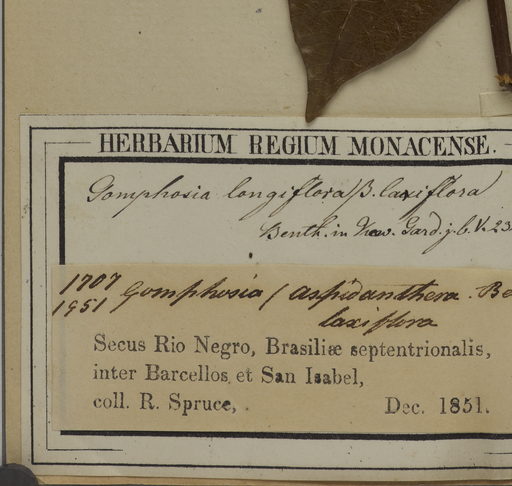 HERBARIUM REGIUM MONACENSE.
Gomphosia longiflora β. laxiflora
Benth. in Kew. Gard. j. b. V. 23
1707
1951 Gomphosia / aspidanthera. Be
laxiflora
Secus Rio Negro, Brasiliæ septentrionalis,
inter Barcellos et San Isabel,
coll. R. Spruce, Dec. 1851.